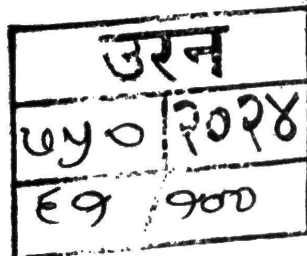 उरन
७५० २०२४
६१ / १००